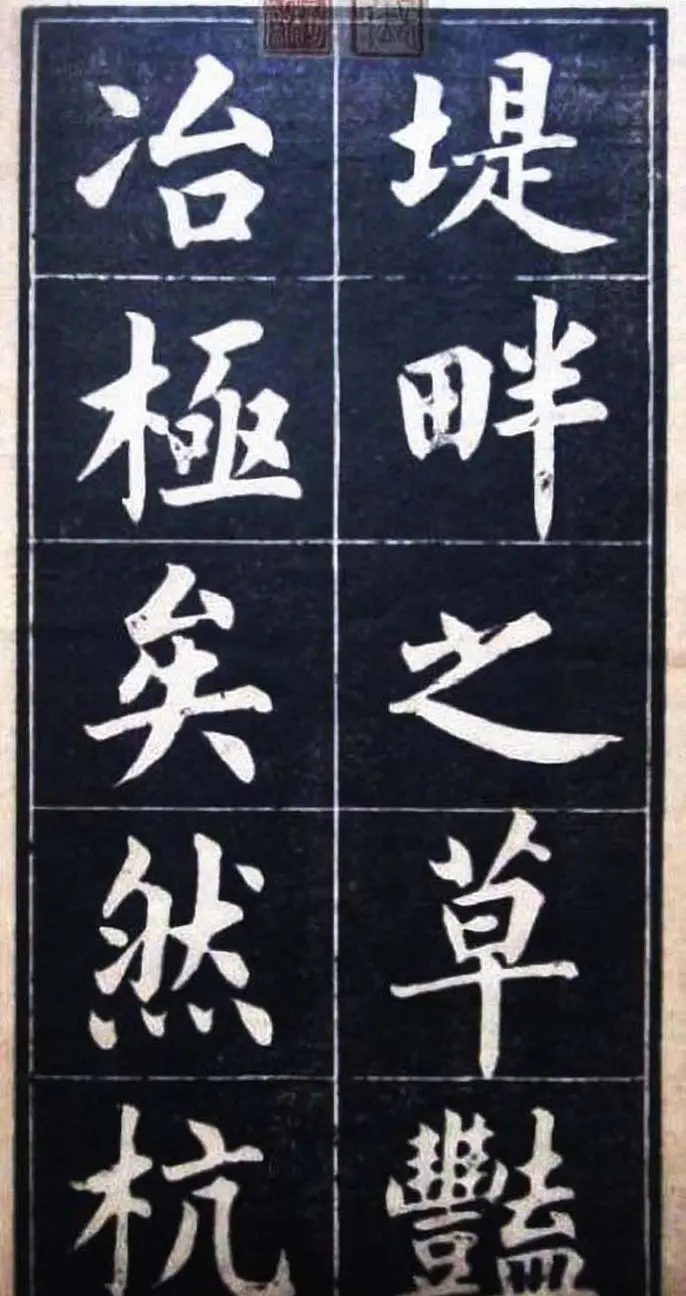 堤畔之草豔
冶極矣然杭